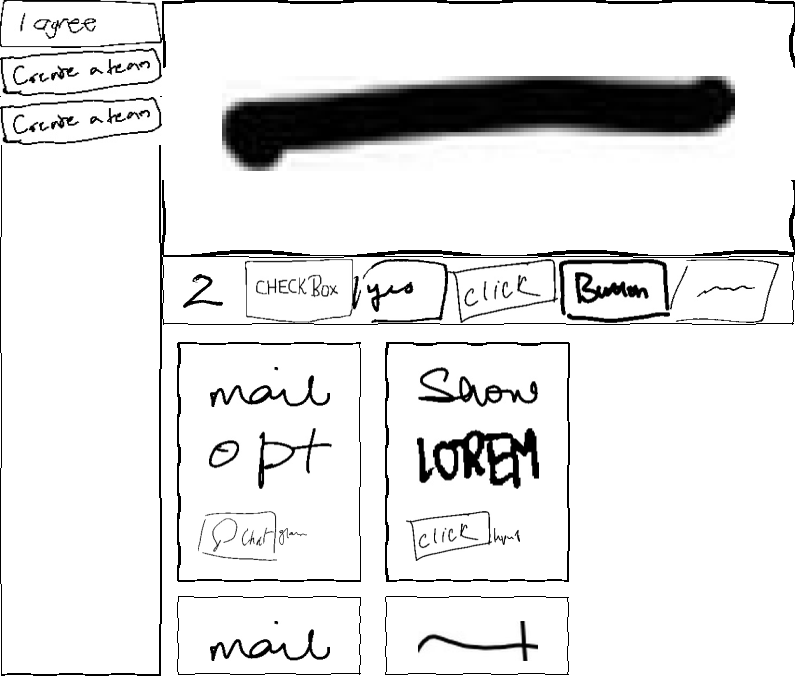 I agree
Create a team
Create a team
2 CHECKBox yes click Button
mail
opt
Chat
Show
LOREM
click Input
mail